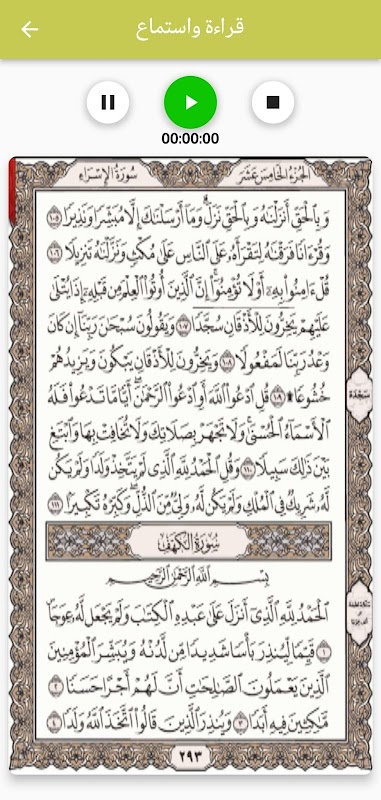 قراءة واستماع
00:00:00
الجزء الخامس عشر
سورة الإسراء
وَبِالْحَقِّ أَنزَلْنَاهُ وَبِالْحَقِّ نَزَلَ ۗ وَمَا أَرْسَلْنَاكَ إِلَّا مُبَشِّرًا وَنَذِيرًا ١٠٥
وَقُرْءَانًا فَرَقْنَاهُ لِتَقْرَأَهُ عَلَى النَّاسِ عَلَىٰ مُكْثٍ وَنَزَّلْنَاهُ تَنزِيلًا ١٠٦
قُلْ ءَامِنُوا بِهِ أَوْ لَا تُؤْمِنُوا ۚ إِنَّ الَّذِينَ أُوتُوا الْعِلْمَ مِن قَبْلِهِ إِذَا يُتْلَىٰ
عَلَيْهِمْ يَخِرُّونَ لِلْأَذْقَانِ سُجَّدًا ١٠٧ وَيَقُولُونَ سُبْحَانَ رَبِّنَا إِن كَانَ
وَعْدُ رَبِّنَا لَمَفْعُولًا ١٠٨ وَيَخِرُّونَ لِلْأَذْقَانِ يَبْكُونَ وَيَزِيدُهُمْ
خُشُوعًا ۩ ١٠٩ قُلِ ادْعُوا اللَّهَ أَوِ ادْعُوا الرَّحْمَٰنَ ۖ أَيًّا مَّا تَدْعُوا فَلَهُ
الْأَسْمَاءُ الْحُسْنَىٰ ۚ وَلَا تَجْهَرْ بِصَلَاتِكَ وَلَا تُخَافِتْ بِهَا وَابْتَغِ
بَيْنَ ذَٰلِكَ سَبِيلًا ١١٠ وَقُلِ الْحَمْدُ لِلَّهِ الَّذِي لَمْ يَتَّخِذْ وَلَدًا وَلَمْ يَكُن
لَّهُ شَرِيكٌ فِي الْمُلْكِ وَلَمْ يَكُن لَّهُ وَلِيٌّ مِّنَ الذُّلِّ ۖ وَكَبِّرْهُ تَكْبِيرًا ١١١
سجدة
سورة الكهف
بِسْمِ اللَّهِ الرَّحْمَٰنِ الرَّحِيمِ
الْحَمْدُ لِلَّهِ الَّذِي أَنزَلَ عَلَىٰ عَبْدِهِ الْكِتَابَ وَلَمْ يَجْعَل لَّهُ عِوَجًا
١ قَيِّمًا لِّيُنذِرَ بَأْسًا شَدِيدًا مِّن لَّدُنْهُ وَيُبَشِّرَ الْمُؤْمِنِينَ
الَّذِينَ يَعْمَلُونَ الصَّالِحَاتِ أَنَّ لَهُمْ أَجْرًا حَسَنًا ٢
مَّاكِثِينَ فِيهِ أَبَدًا ٣ وَيُنذِرَ الَّذِينَ قَالُوا اتَّخَذَ اللَّهُ وَلَدًا ٤
٢٩٣